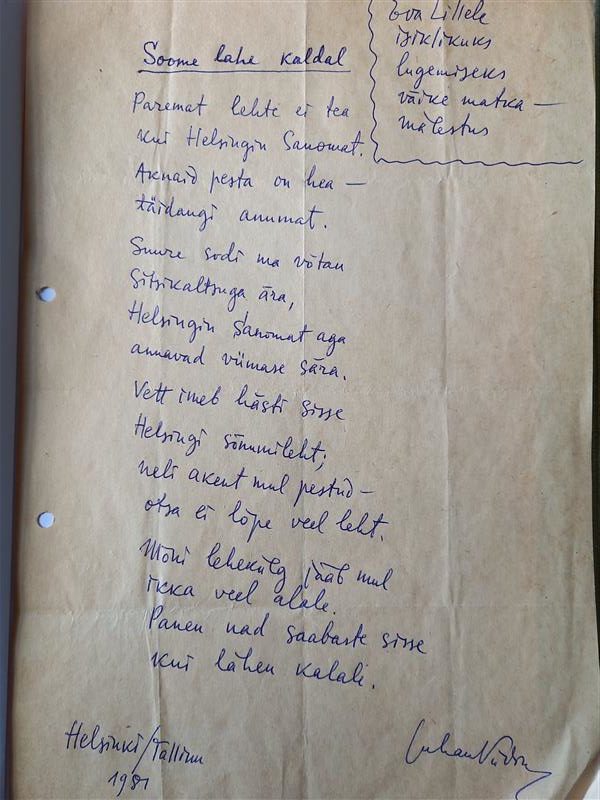 Eva Lillele
isiklikuks
lugemiseks
väike matka–
mälestus
Soome lahe kaldal
Paremat lehte ei tea
kui Helsingin Sanomat.
Aknaid pesta on hea –
täidangi anumat.
Suure sodi ma võtan
sitsikaltsuga ära,
Helsingin Sanomat aga
annavad viimase sära.
Vett imeb hästi sisse
Helsingi sõnumileht;
neli akent mul pestud –
otsa ei lõpe veel leht.
Mõni lehekülg jääb mul
ikka veel alale.
Panen nad saabaste sisse
kui lähen kalale.
Helsinki/Tallinn
1981
Juhan Viiding